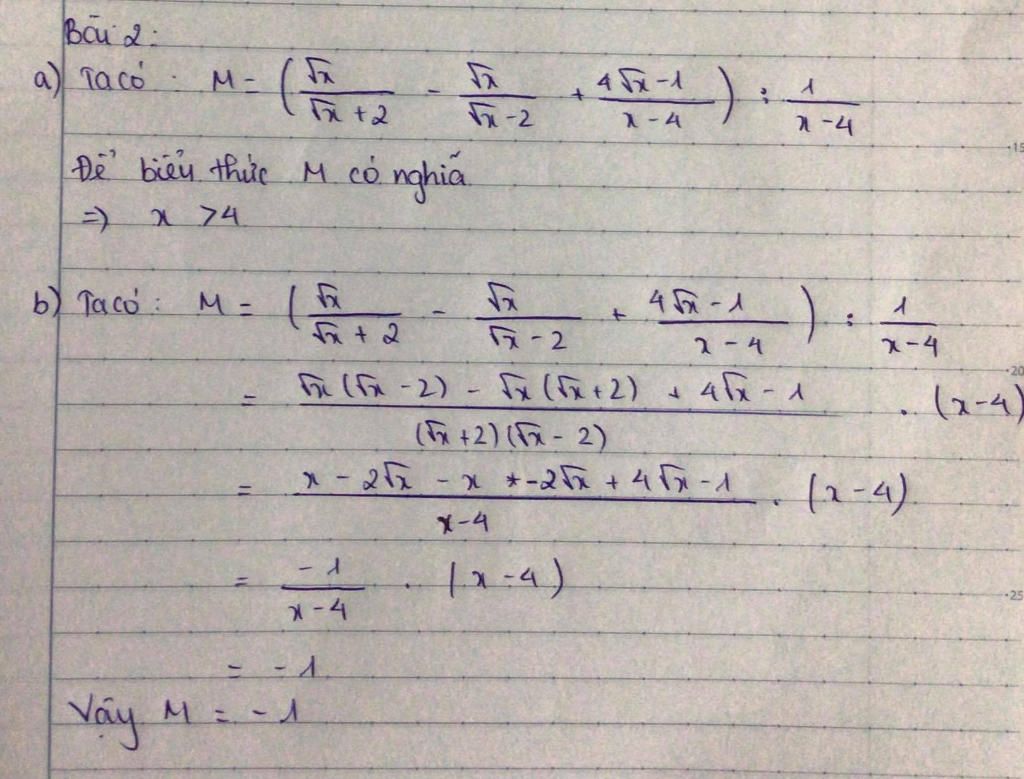 Bài 2:
a) Ta có: M = (√x/(√x + 2) - √x/(√x - 2) + (4√x - 1)/(x - 4)) : 1/(x - 4)
15
Để biểu thức M có nghĩa
=> x > 4
b) Ta có: M = (√x/(√x + 2) - √x/(√x - 2) + (4√x - 1)/(x - 4)) : 1/(x - 4)
20
= (√x(√x - 2) - √x(√x + 2) + 4√x - 1)/((√x + 2)(√x - 2)) . (x - 4)
= (x - 2√x - x - 2√x + 4√x - 1)/(x - 4) . (x - 4)
= -1/(x - 4) . (x - 4)
25
= -1
Vậy M = -1